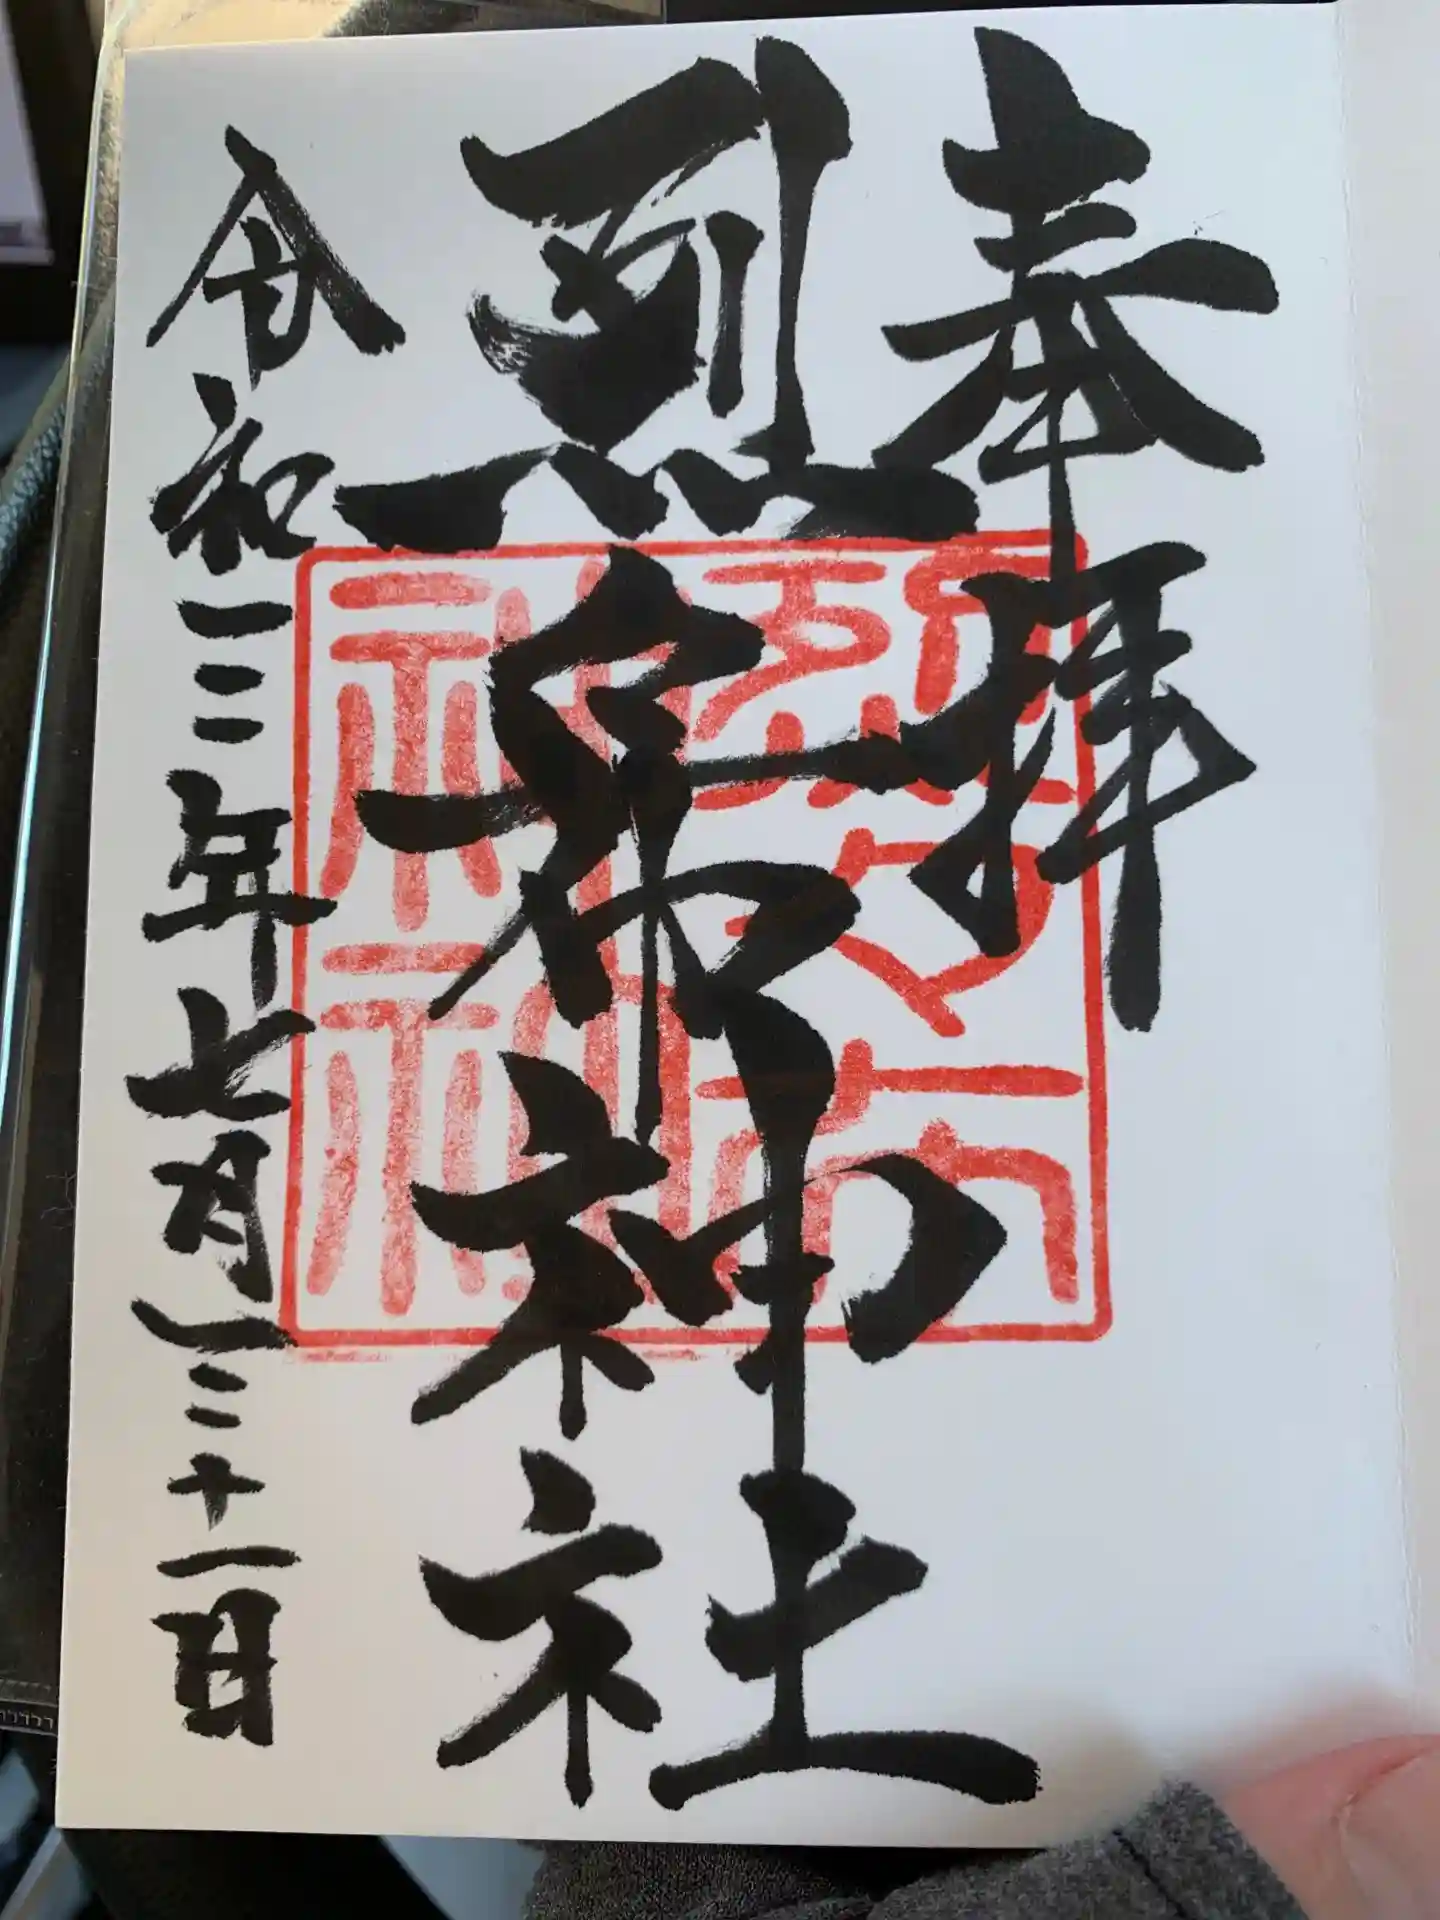 奉拝
烈々布神社
令和三年七月三十一日
烈々布
神社